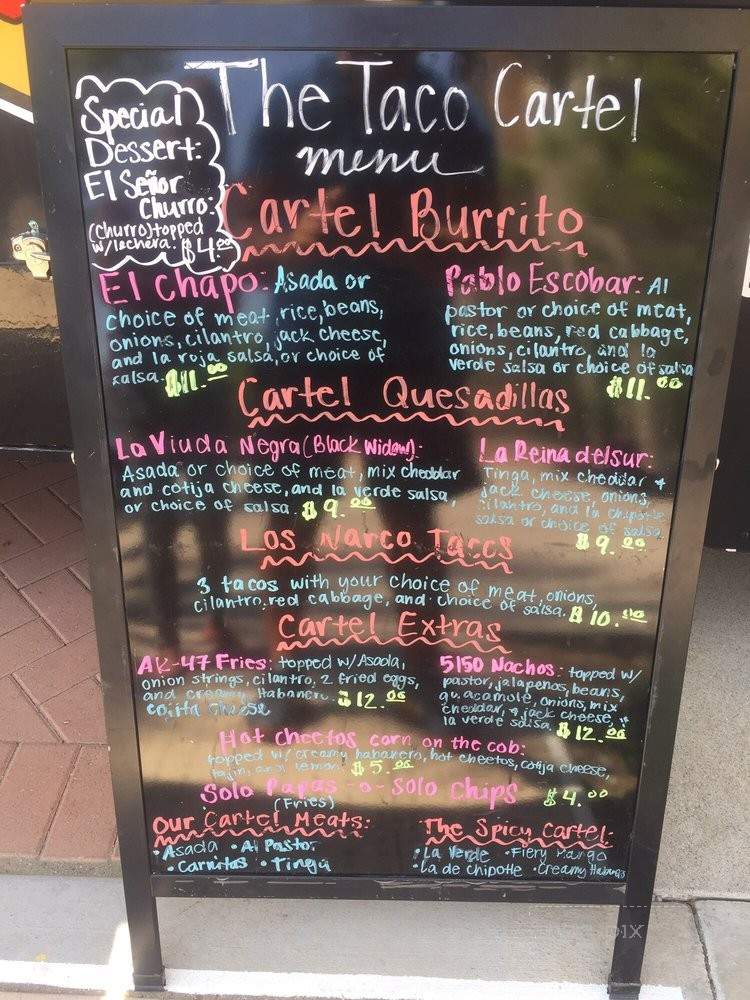 The Taco Cartel
menu
Special
Dessert:
El Señor
Churro:
(Churro) topped
w/lechera. $4.00
Cartel Burrito
El Chapo: Asada or
choice of meat, rice, beans,
onions, cilantro, jack cheese,
and la roja salsa, or choice of
salsa. $11.00
Pablo Escobar: Al
pastor or choice of meat,
rice, beans, red cabbage,
onions, cilantro, and la
verde salsa or choice of salsa
$11.00
Cartel Quesadillas
La Viuda Negra (Black Widow):
Asada or choice of meat, mix cheddar
and cotija cheese, and la verde salsa,
or choice of salsa. $9.00
La Reina del sur:
Tinga, mix cheddar &
jack cheese, onions,
cilantro, and la chipotle
salsa or choice of salsa
$9.00
Los Narco Tacos
3 tacos with your choice of meat, onions,
cilantro, red cabbage, and choice of salsa. $10.00
Cartel Extras
AK-47 Fries: topped w/ Asada,
onion strings, cilantro, 2 fried eggs,
and creamy Habanero. $12.00
cojita cheese
5150 Nachos: topped w/
pastor, jalapeños, beans,
guacamole, onions, mix
cheddar, & jack cheese,
la verde salsa. $12.00
Hot Cheetos corn on the cob:
topped w/ creamy habanero, hot cheetos, cotija cheese,
tajin, and lemon. $5.00
Solo Papas -o- Solo Chips $4.00
(Fries)
Our Cartel Meats:
• Asada • Al Pastor
• Carnitas • Tinga
The Spicy Cartel:
• La Verde • Fiery Mango
• La de Chipotle • Creamy Habanero